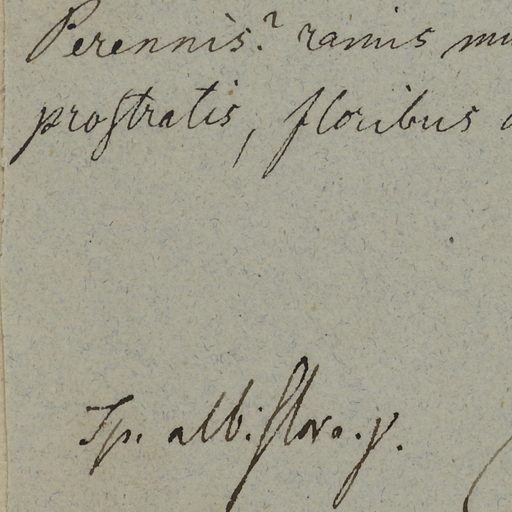 Perennis? ramis
prostratis, floribus
Sp. albiflora. γ.